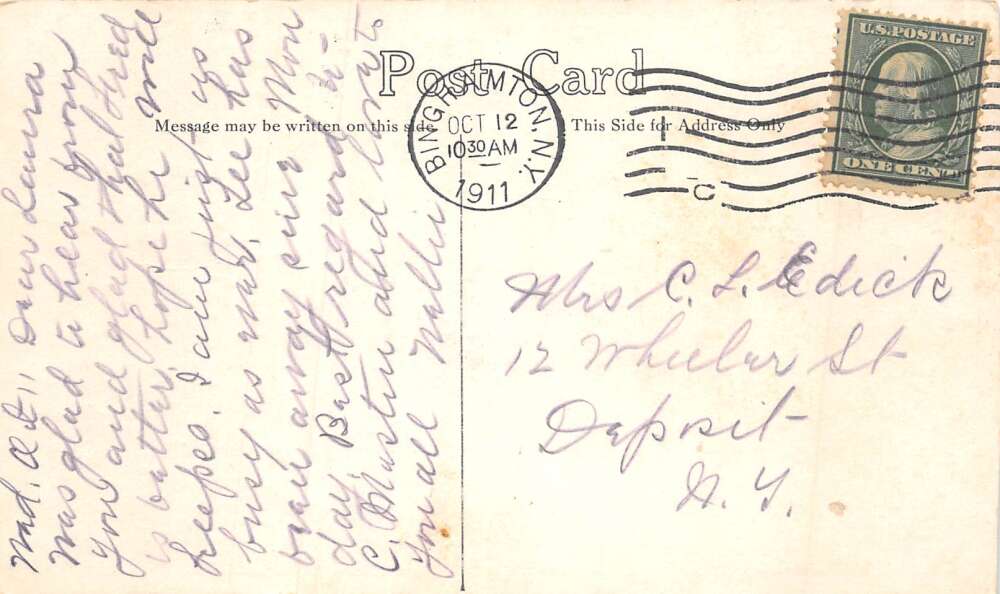 Post Card
Message may be written on this side
This Side for Address Only
BINGHAMTON. N.Y.
OCT 12
10 30 AM
1911
U.S. POSTAGE
ONE CENT
C
Wed. 11 Dear Laura
was glad to hear from
you and glad that
is better hope he will
keeps. I am just as
busy as ever. Lee has
been away since Mon
day. Best regards to
C. and love to
You all Nellie
Mrs C. L. Edick
12 Wheeler St
Deposit
N. Y.